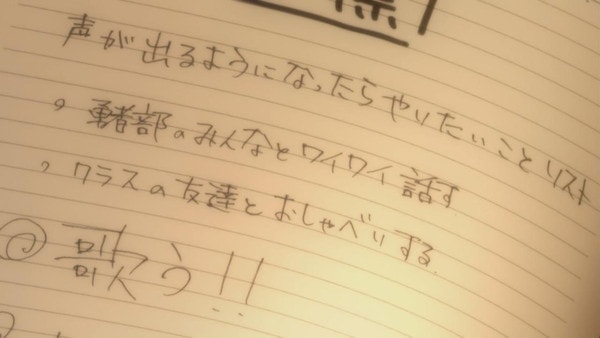 声が出るようになったらやりたいことリスト
。勇者部のみんなとワイワイ話す
。クラスの友達とおしゃべりする
◎歌う!!